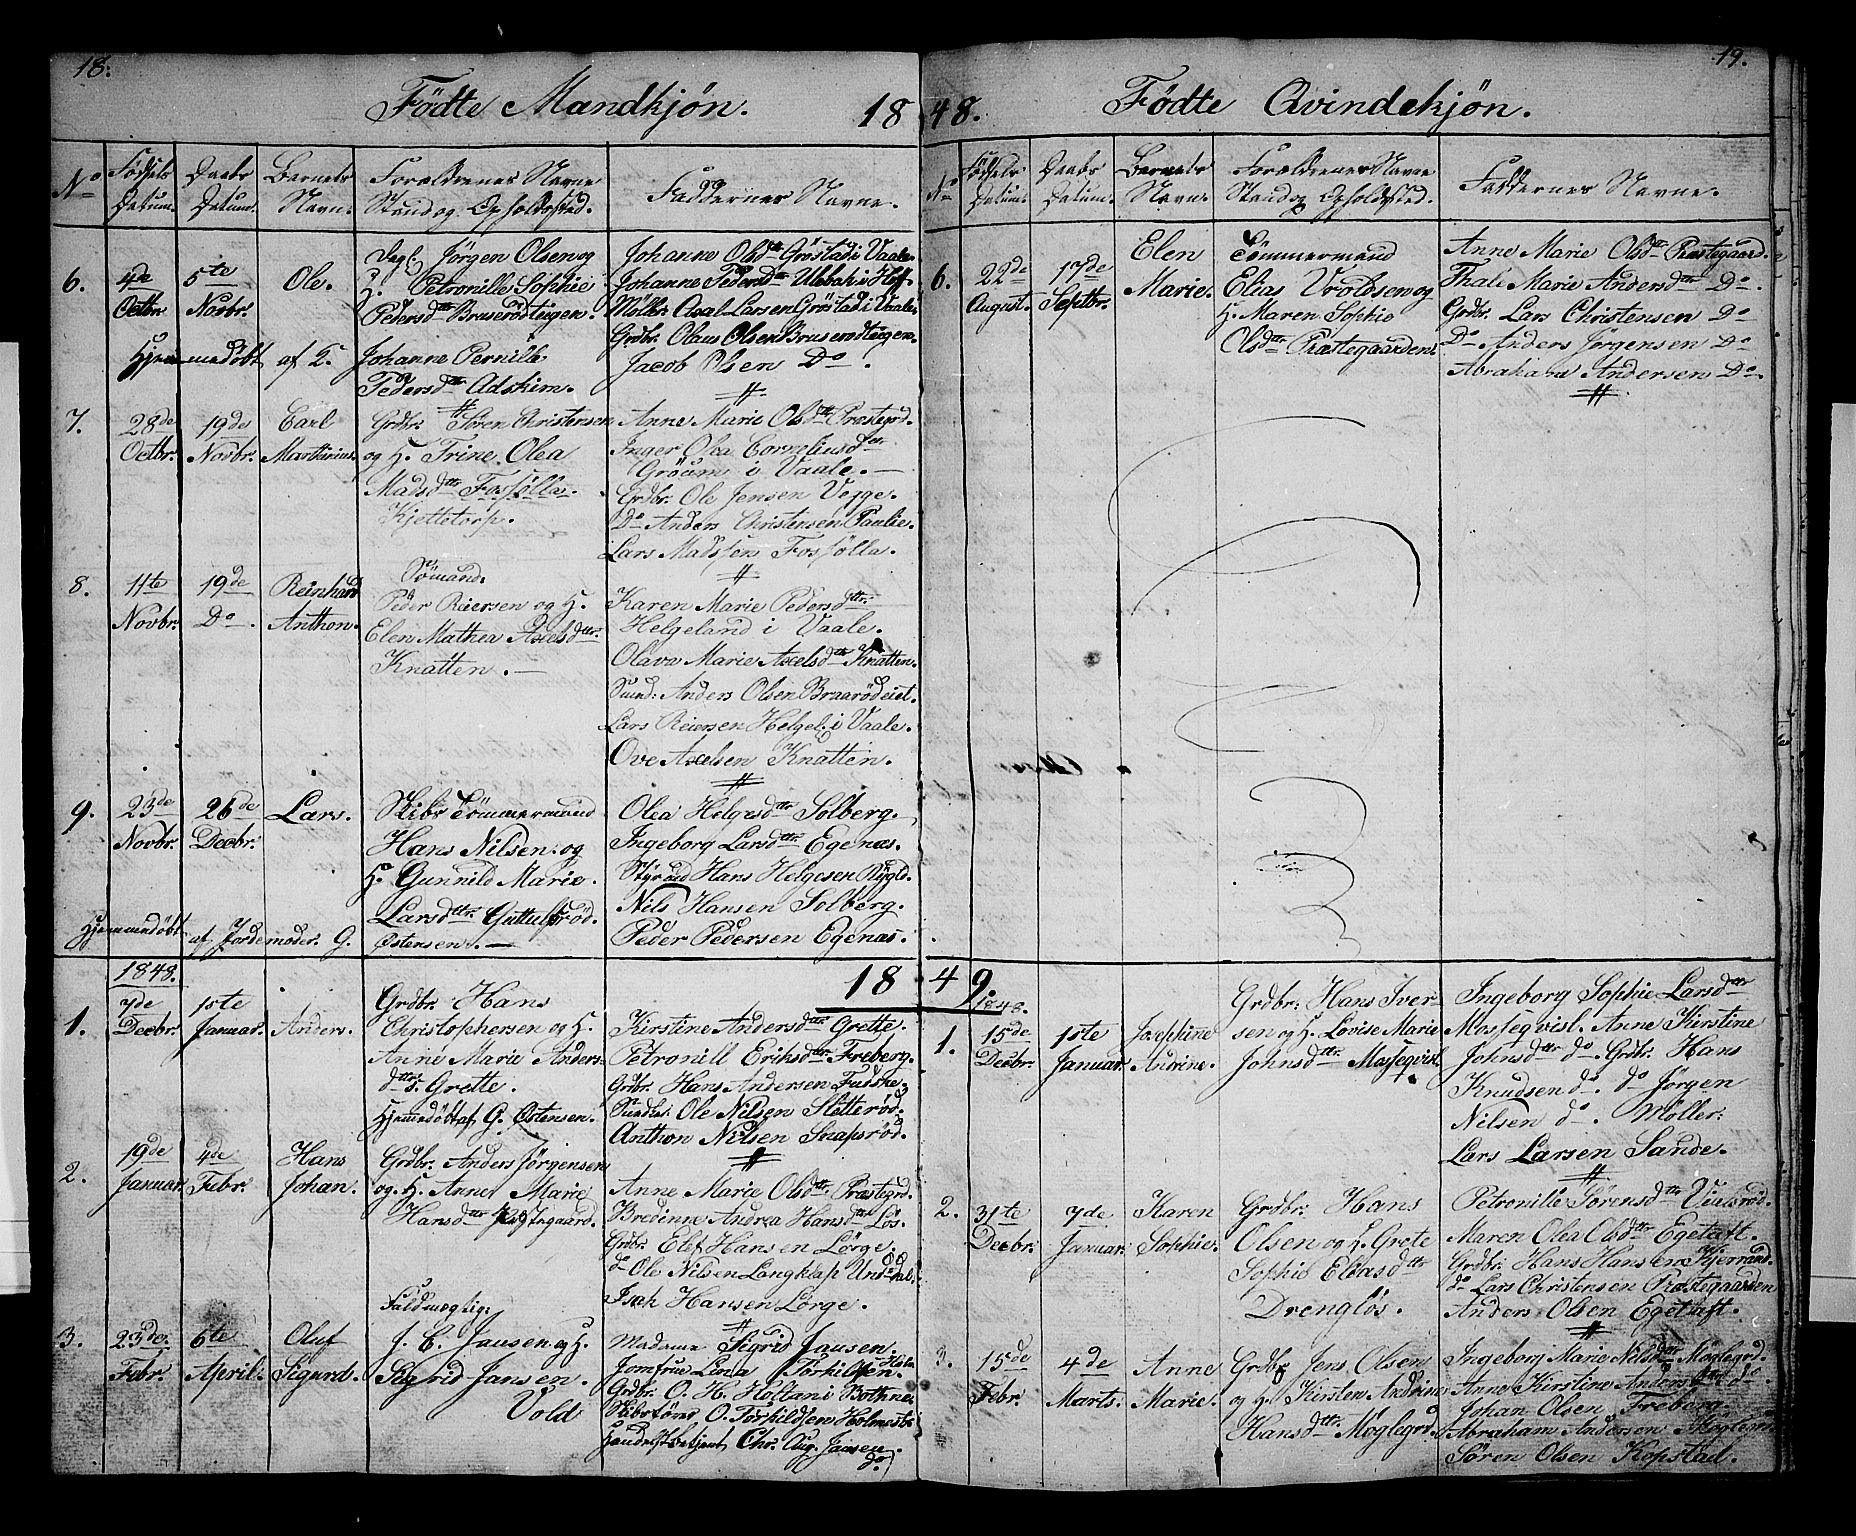 18.
Födte Mandkjön. 18
No
Födsels Datum.
Daabs Datum.
Barnets Navn.
Forældrenes Navne Stand og Opholdssted.
Faddernes Navne.
6.
4de Octbr.
5te Novbr.
Ole.
Jörgen Olsen og
H. Petronille Sophie
Pedersdttr Bruserödteigen.
Hjemmedöbt af
Johanne Pernile
Pedersdttr Adskim.
Johanne Olsdttr Gröstad i Vaale
Johanne Pedersdttr Ulebak i Hoff
Möller Axel Larsen Gröstad i Vaale
Grdbr. Olaus Olsen Bruserodteigen
Jacob Olsen Do.
7.
28de Octbr.
19de Novbr.
Carl Marthinius.
Grdbr. Sören Christensen
og H. Trine Olea
Madsdttr Fossölla.
Kjettetorp.
Anne Marie Olsdttr Præstegrd.
Inger Olea Corneliusdttr
Gröum i Vaale.
Grdbr. Ole Jensen Vejge.
Do Anders Christensen Paulie.
Lars Madssen Fossölla.
8.
11te Novbr.
19de Do.
Reinhard Anthon.
Sömand.
Peder Reiersen og H.
Elen Mathea Axelsdttr.
Knatten.
Karen Marie Pedersdttr.
Helgeland i Vaale.
Olava Marie Axelsdttr Knatten.
Anders Olsen Braarödeiet.
Lars Reiersen Helgel: i Vaale.
Ove Axelsen Knatten.
9.
23de Novbr.
26de Decbr.
Lars.
Skibs Tömmermand
Hans Nilsen og
H. Gunnild Marie
Larsdttr.
Hjemmedöbt af Jordemoder G. Østensen.
Olea Helgesdttr Solberg.
Ingeborg Larsdttr. Egenæs.
Hans Helgesen
Nils Hansen Solberg.
Peder Pedersen Egenæs.
18
1.
1848.
7de Decbr.
1ste Januar.
Anders.
Grdbr. Hans
Christophersen og H.
Anne Marie Anders
dttr. Grette.
Hjemmedöbt af G. Østensen.
Kirstine Andersdttr Grette.
Petronill Eriksdttr Freberg.
Grdbr. Hans Andersen Fadske.
Ole Nilsen Sletteröd.
Anthon Nilsen Snapsröd.
2.
19de Januar.
4de Febr.
Hans Johan.
Grdbr. Anders Jörgensen
og H. Anne Marie
Hansdttr Præstegaard.
Anne Marie Olsdttr Præstegrd.
Bredinne Andrea Hansdttr Lös.
Grdbr. Elef Hansen Lörge.
do Ole Nilsen Langklap Unddal.
Isak Hansen Lörge.
3.
23de Febr.
6te April.
Oluf Sigurd.
Fuldmægtig
J. C. Jansen og H.
Sigrid Jansen.
Vold
Madame Sigrid Jansen.
Jomfrue Lina Torkildsen
Grdbr. O. H. Holtan i Bothne
Skibsförer O. Torkildsen Holmestr.
Handelsbetjent Chr. Aug. Jansen.
do
19.
48. Födte Qvindekjön.
No
Födsels Datum.
Daabs Datum.
Barnets Navn.
Forældrenes Navne Stand og Opholdssted.
Faddernes Navne.
6.
22de August.
17de Septbr.
Elen Marie.
Tömmermand
Elias Vroldsen og
H. Maren Sophie
Olsdttr Præstegaarden.
Anne Marie Olsdttr Præstegaard.
Thale Marie Andersdttr Do
Grdbr. Lars Christensen Do
Do Anders Jörgensen Do
Abraham Andersen Do.
49.
1.
1848.
15de Decbr.
1ste Januar.
Josephine
Grdbr. Hans Iver-
sen og H. Lovise Marie
Johnsdttr Mossegvisl
Ingeborg Sophie Larsdttr
Mossegvisl. Anne Kirstine
Johnsdttr do. Grdbr. Hans
Knudsen do. do Jörgen
Nilsen do. Möller
Lars Larsen Sande.
2.
31te Decbr.
7de Januar.
Karen Sophie.
Grdbr. Hans
Olsen og H. Grete
Sophie Eliasdttr
Drenglös.
Petronille Sörensdttr
Maren Olea Olsdttr Egetæft.
Grdbr. Hans Hansen
do Lars Christensen Præstegaarden
Anders Olsen Egetæft.
3.
15de Febr.
4de Marts.
Anne Marie.
Grdbr Jens Olsen
og H. Kirsten Andrine
Hansdttr Möglegrd.
Ingeborg Marie Nilsdttr Möglegrd.
Anne Kirstine Andersdttr do
Johan Olsen Freberg.
Abraham Andersen Möglegrd
Sören Olsen Kopstad.